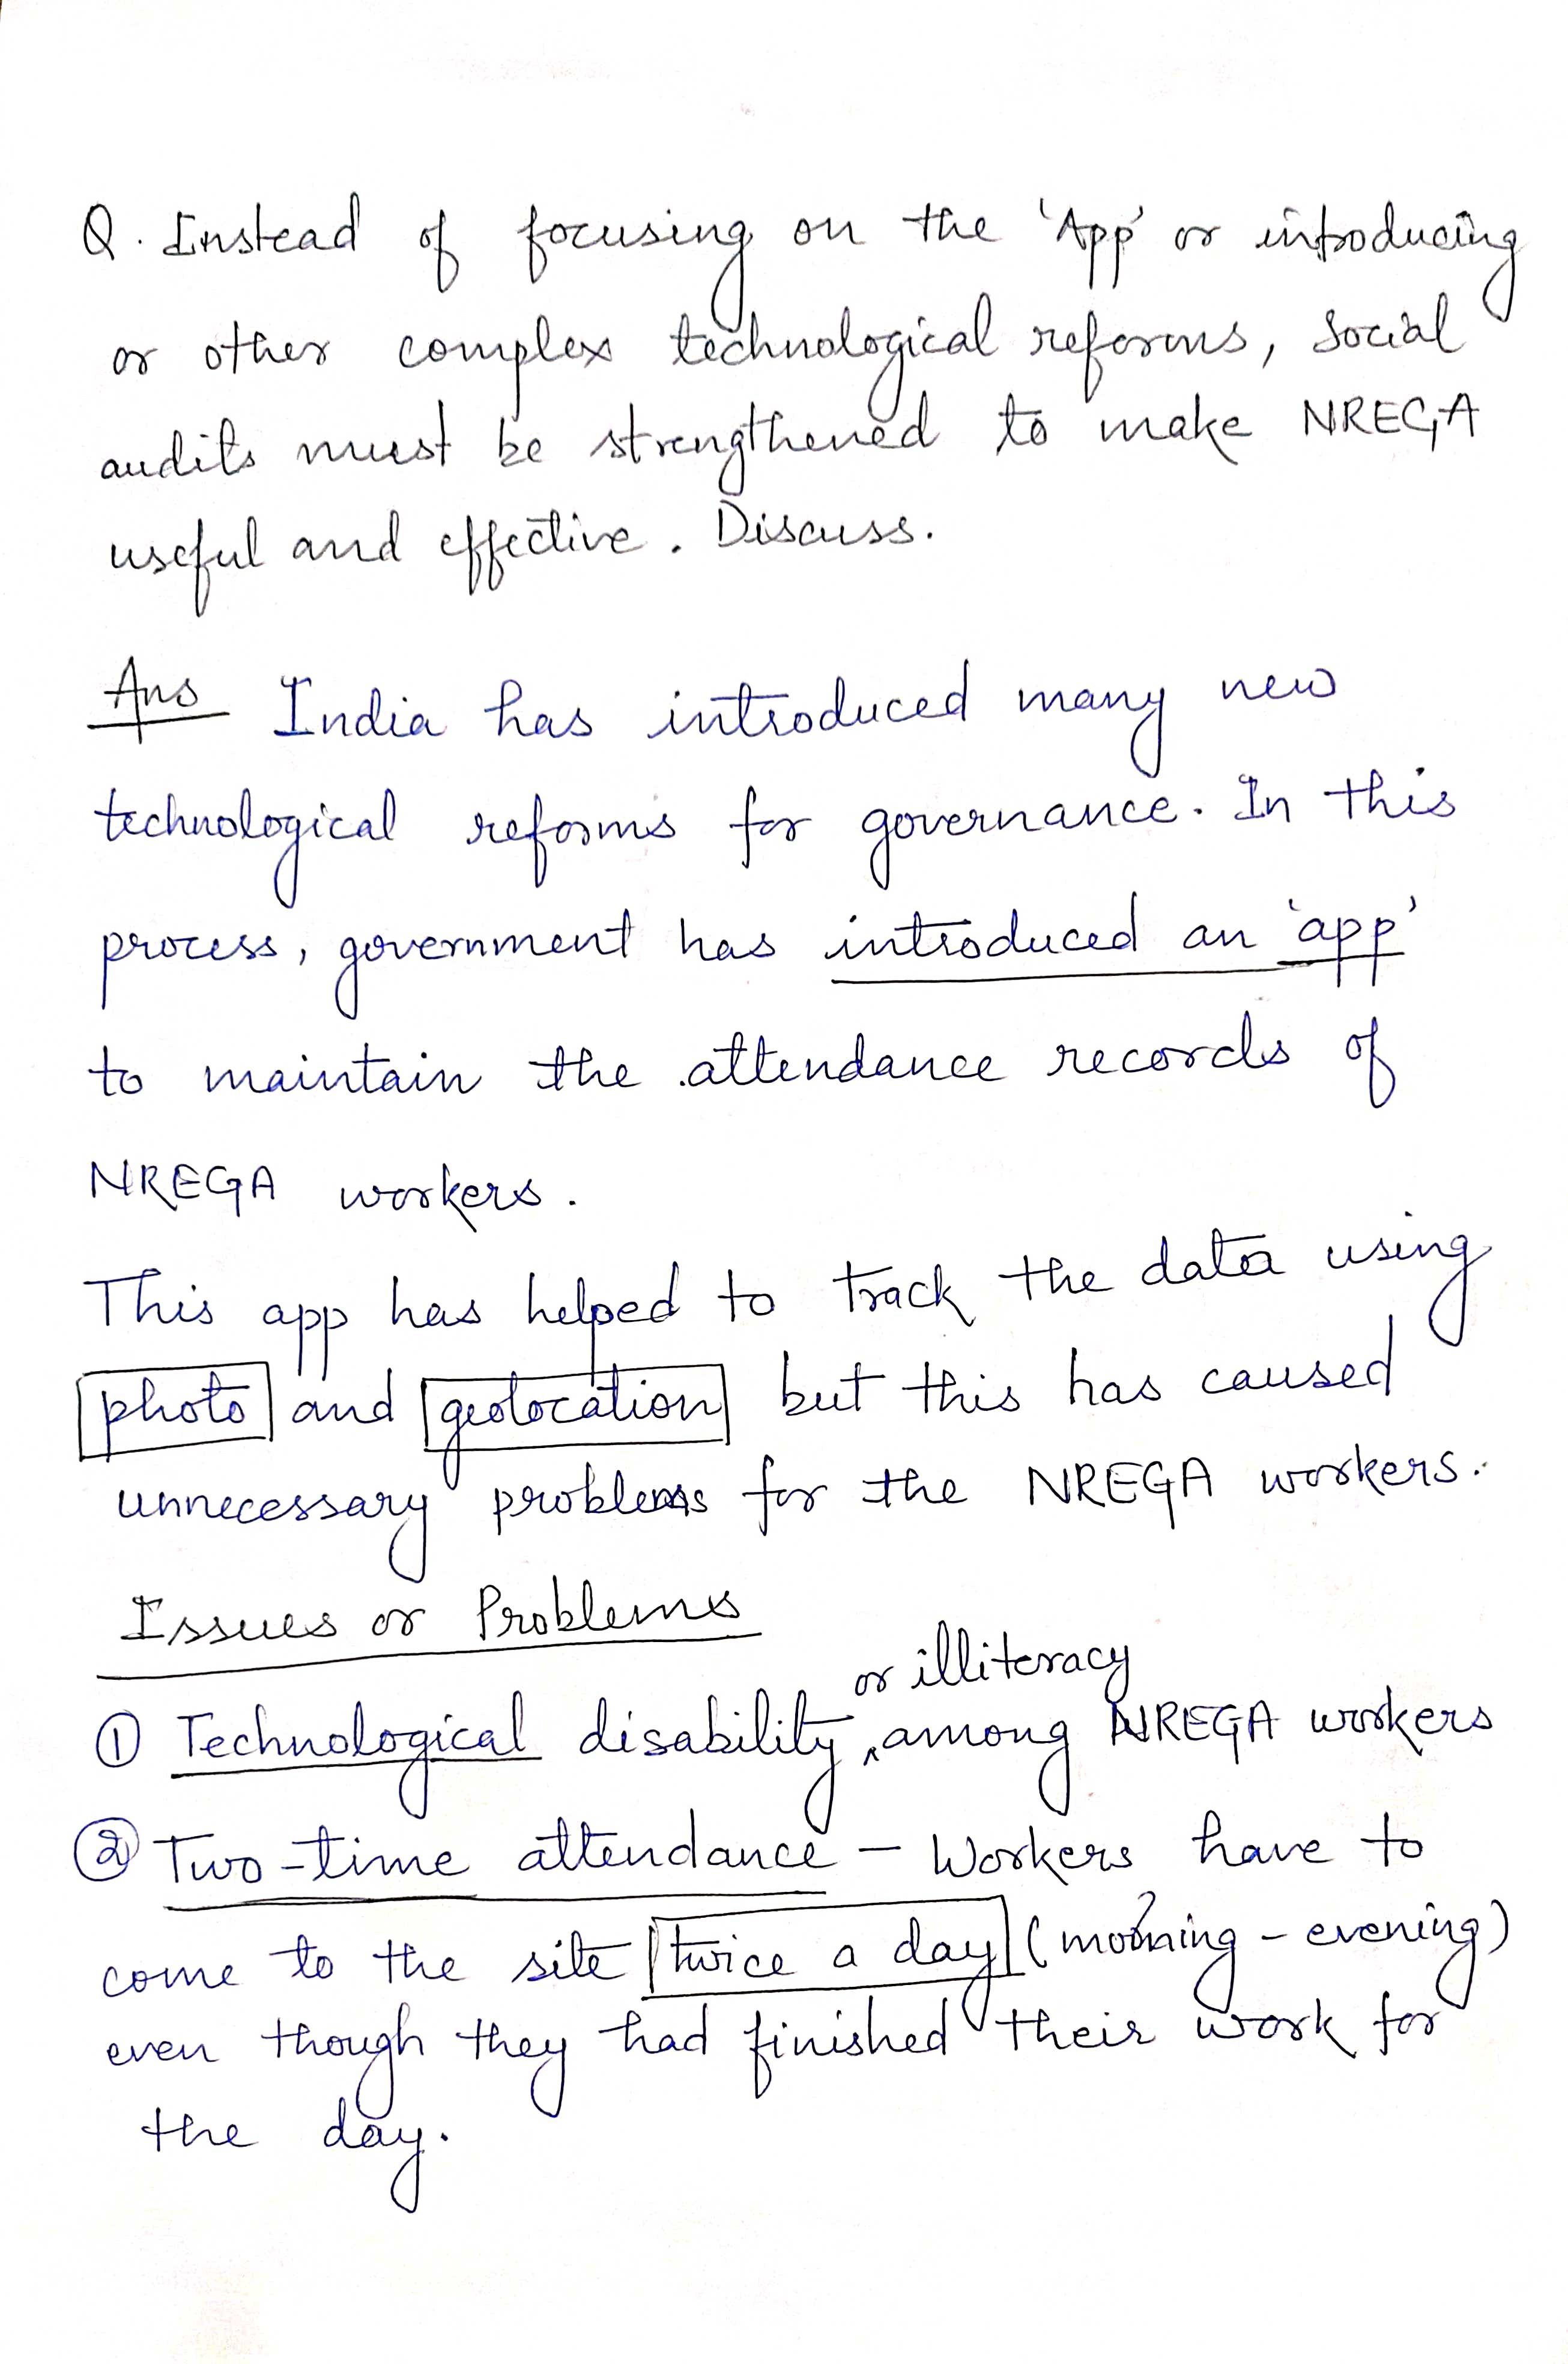 Q. Instead of focusing on the 'App' or introducing
or other complex technological reforms, social
audits must be strengthened to make NREGA
useful and effective. Discuss.
Ans India has introduced many new
technological reforms for governance. In this
process, government has introduced an 'app'
to maintain the attendance records of
NREGA workers.
This app has helped to track the data using
photo and geolocation but this has caused
unnecessary problems for the NREGA workers.
Issues or Problems
or illiteracy
① Technological disability, ‸among NREGA workers
② Two-time attendance – Workers have to
come to the site twice a day (morning - evening)
even though they had finished their work for
the day.